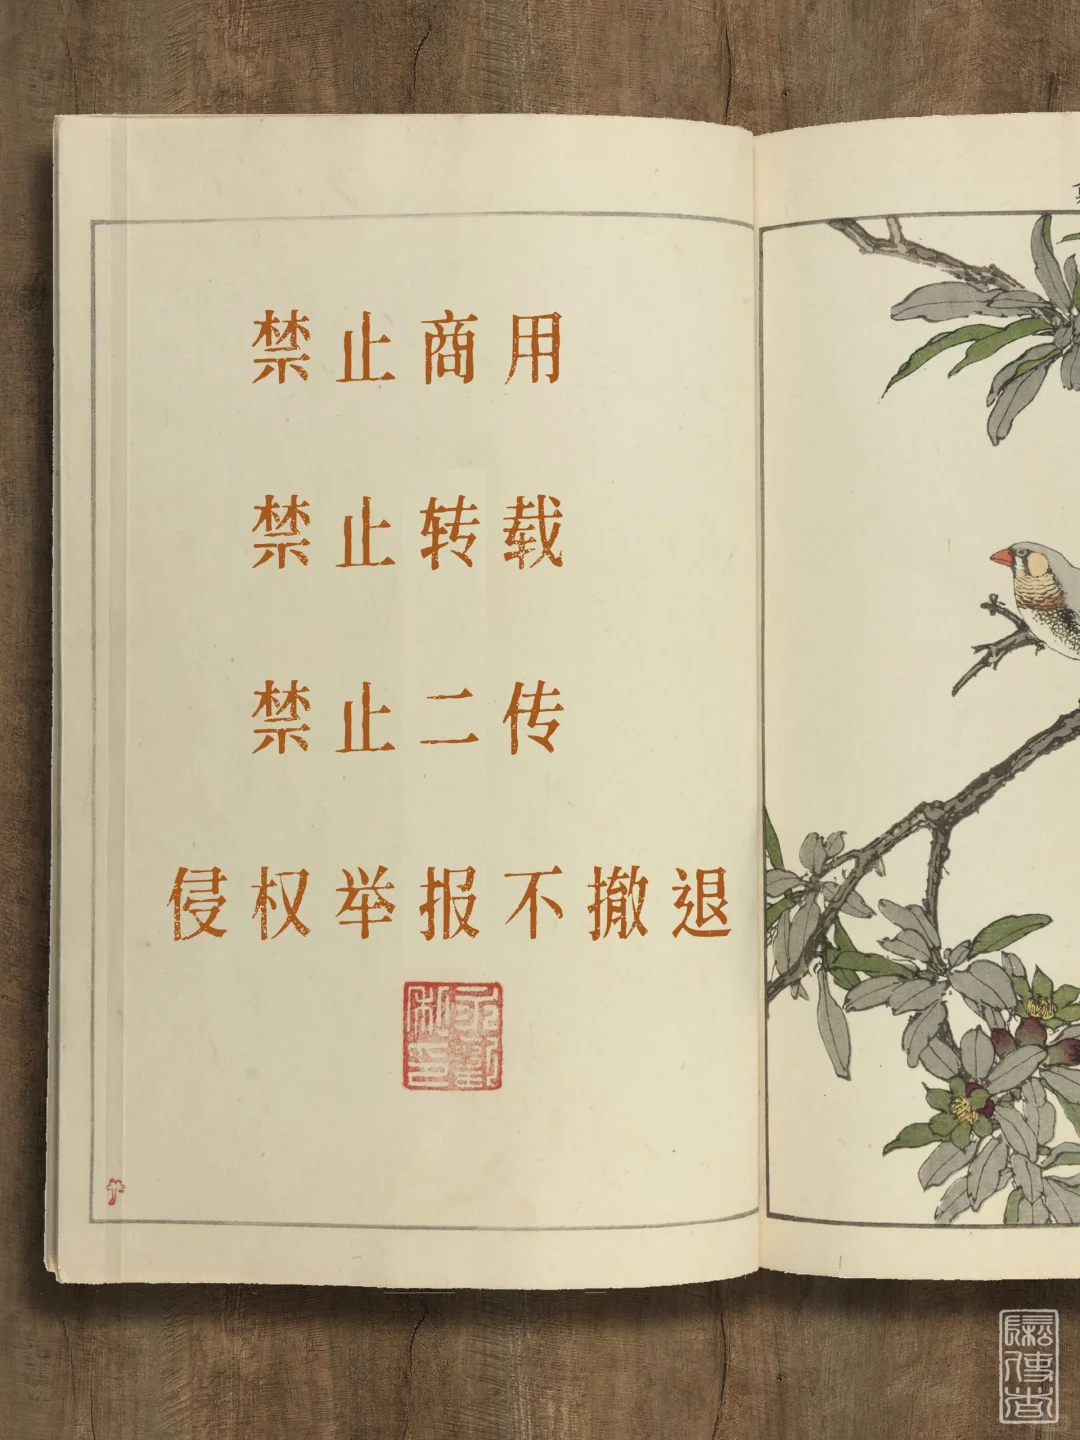 禁止商用
禁止转载
禁止二传
侵权举报不撤退